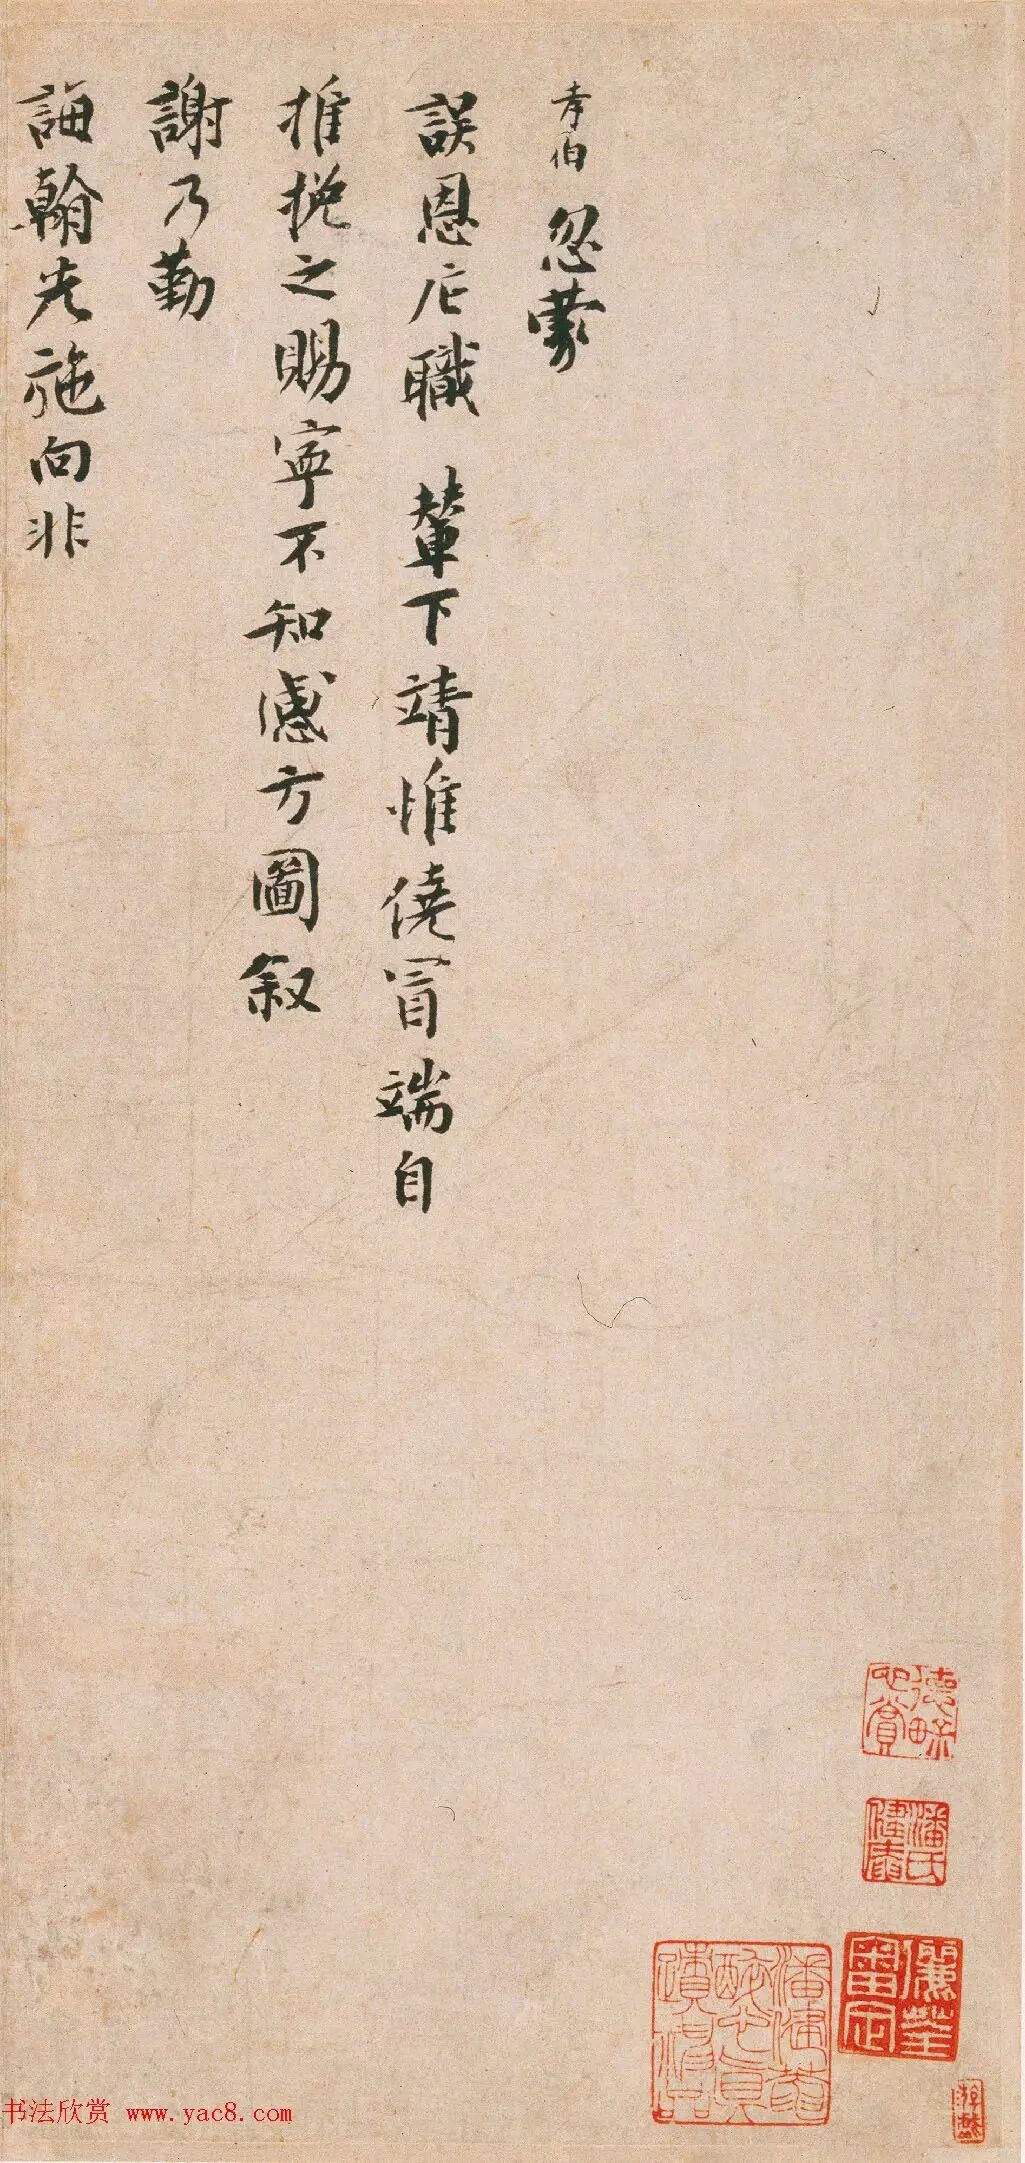 孝伯 忽蒙
誤恩庀職 輦下靖惟僥冒端自
推挽之賜寧不知感方圖叙
謝乃勤
誨翰先施向非
潘氏
書法欣赏 www.yac8.com